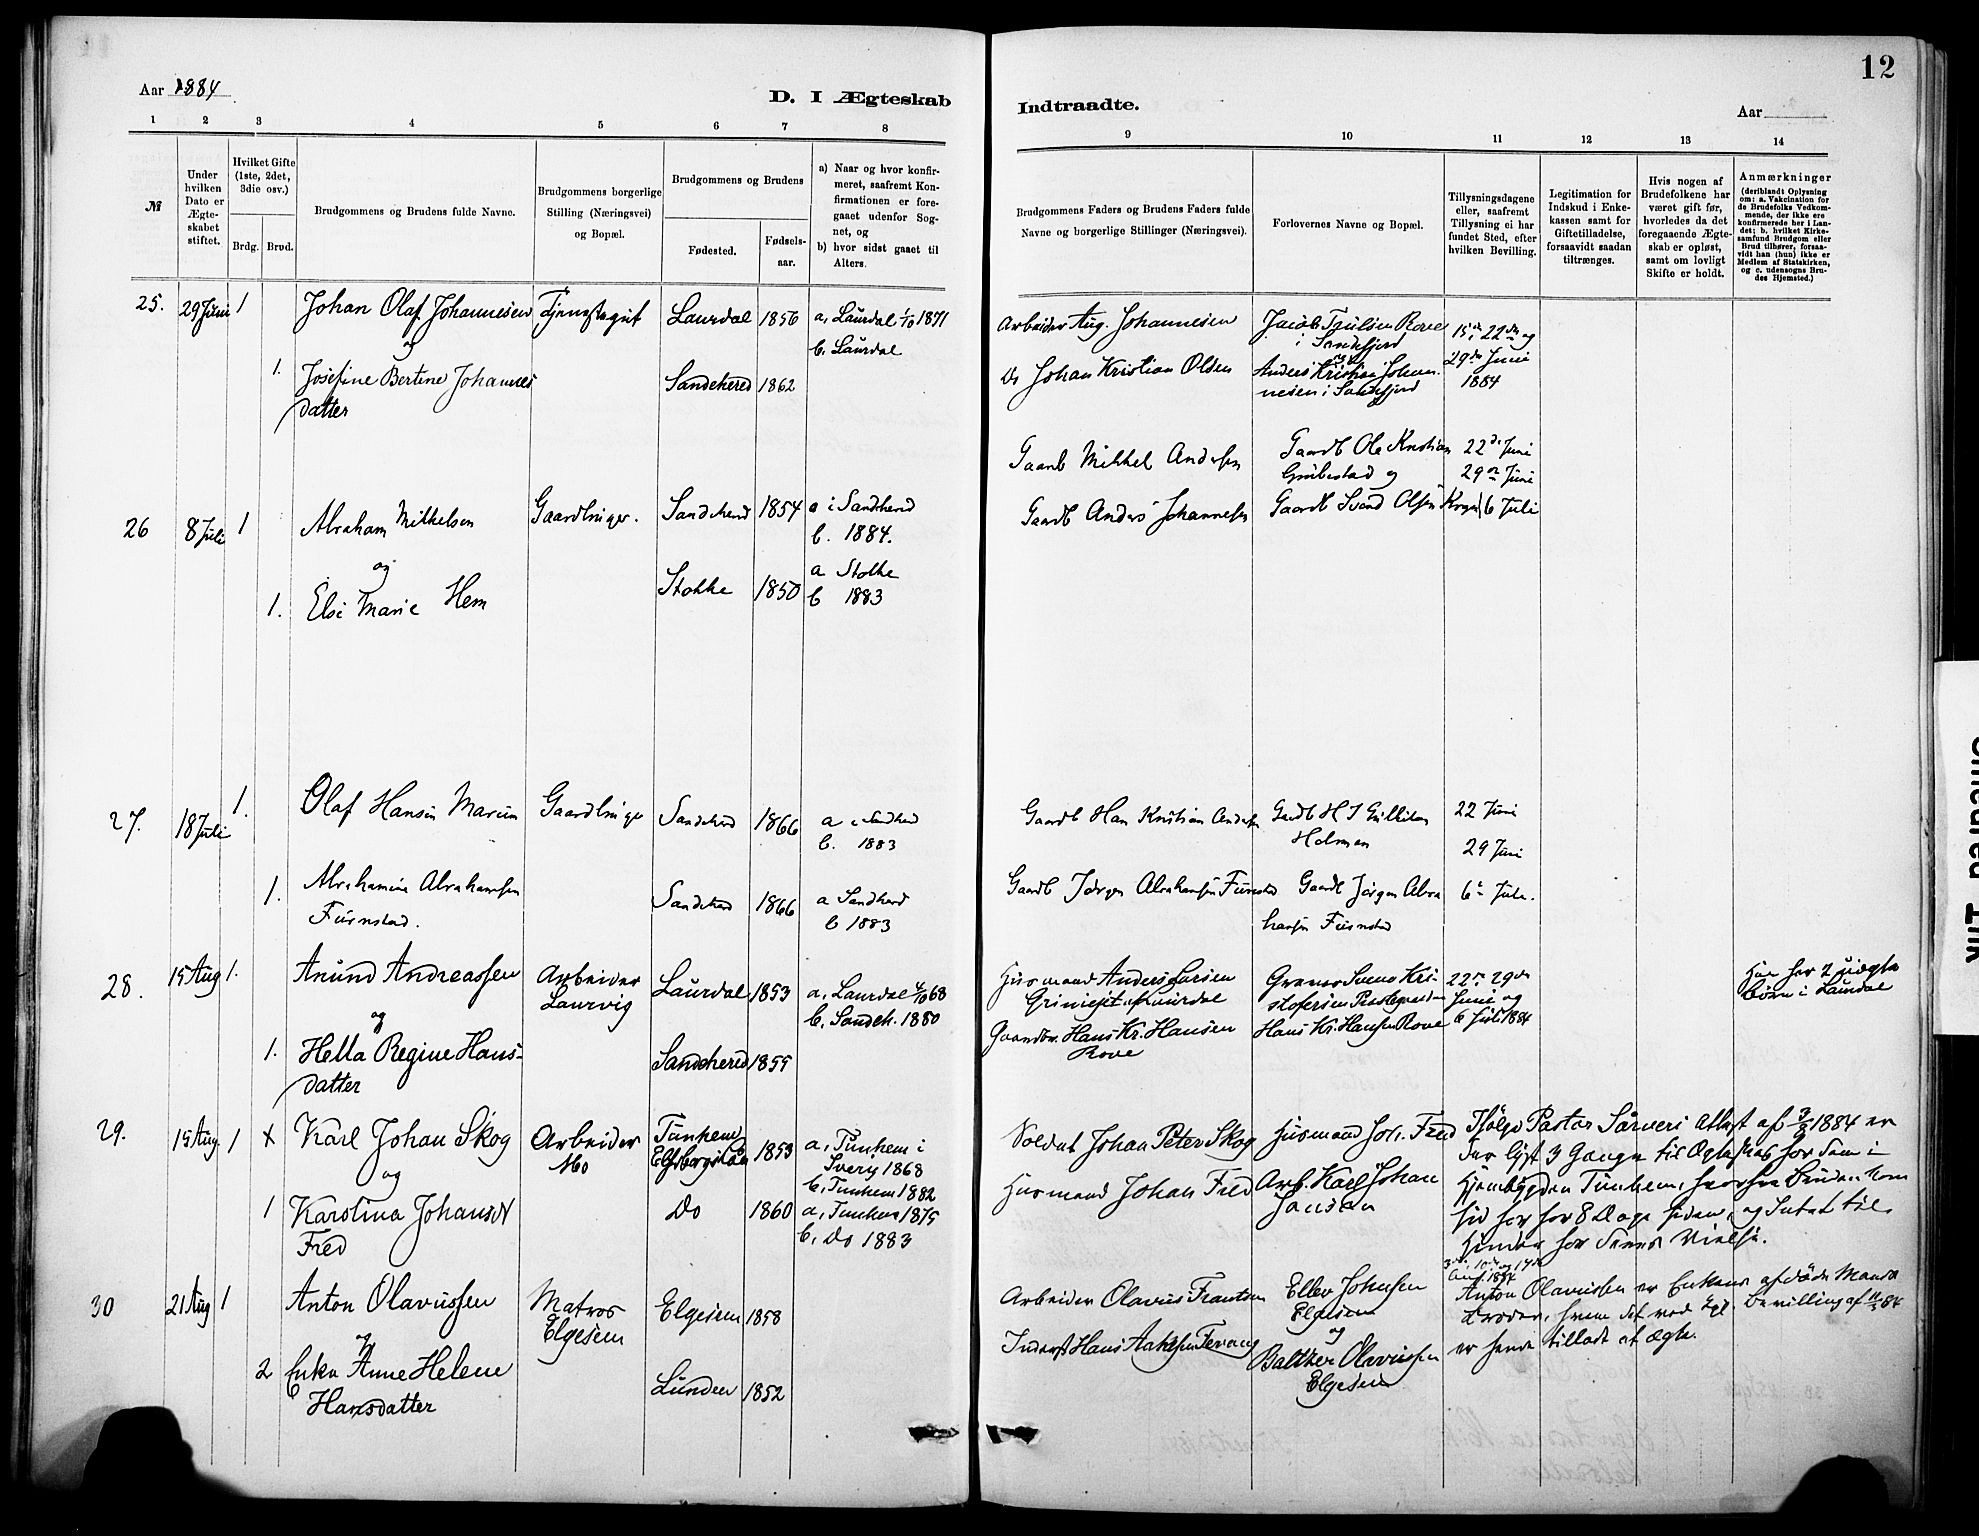 Aar 1884
D. I Ægteskab
Indtraadte.
Aar
12
1 2 3 4 5 6 7 8
9 10 11 12 13 14
№
Under
hvilken
Dato er
Ægte-
skabet
stiftet.
Hvilket Gifte
(1ste, 2det,
3die osv.)
Brdg. Brud.
Brudgommens og Brudens fulde Navne.
Brudgommens borgerlige
Stilling (Næringsvei)
og Bopæl.
Brudgommens og Brudens
Fødested.
Fødsels-
aar.
a) Naar og hvor konfir-
meret, saafremt Kon-
firmationen er fore-
gaaet udenfor Sog-
net, og
b) hvor sidst gaaet til
Alters.
Brudgommens Faders og Brudens Faders fulde
Navne og borgerlige Stillinger (Næringsvei).
Forlovernes Navne og Bopæl.
Tillysningsdagene
eller, saafremt
Tillysning ei har
fundet Sted, efter
hvilken Bevilling.
Legitimation for
Indskud i Enke-
kassen samt for
Giftetilladelse,
forsaavidt saadan
tiltrænges.
Hvis nogen af
Brudefolkene har
været gift før,
hvorledes da det
foregaaende Ægte-
skab er opløst,
samt om lovligt
Skifte er holdt.
Anmærkninger
(deriblandt Oplysning
om: a. Vakcination for
de Brudefolks Vedkom-
mende, der ikke ere
konfirmerede her i Lan-
det; b. hvilket Kirke-
samfund Brudgom eller
Brud tilhører, forsaa-
vidt han (hun) ikke er
Medlem af Statskirken,
og c. udensogns Bru-
des Hjemsted.)
25. 29 Juni 1 Johan Olaf Johannesen Tjenestegut Laurdal 1856 a, Laurdal 1/10 1871
b. Laurdal
og
1. Josefine Bertine Johannes
datter
Sandeherred 1862
Arbeider Aug. Johannesen
Do Johan Kristian Olsen
Jacob Paulsen Rove
i Sandefjord
og
Anders Kristian Johan-
nesen i Sandefjord
15de 22de og
29de Juni
1884
26 8 Juli 1 Abraham Mikkelsen Gaardbruger. Sandeherred 1854 a i Sandeherred
b. 1884.
og
1. Else Marie Hem Stokke 1850 a Stokke
b 1883
Gaardb Mikkel Andersen
Gaardb Anders Johannesen
Gaardb Ole Kristian
og
Gaardb Svend Olsen
22de Juni
29de Juni
6 Juli
27. 18 Juli 1. Olaf Hansen Marum Gaardbruger Sandeherred 1866 a i Sandeherred
b. 1883
1. Abrahamine Abrahamsen
Furustad.
Sandeherred 1866 a Sandeherred
b 1883
Gaardb Han Kristian Andersen
Gaardb Jørgen Abrahamsen Furustad
Holmen
Gaardb Jørgen Abra
hamsen Furustad
22 Juni
29 Juni
6te Juli.
28. 15 Aug 1. Anund Andreassen Arbeider
Laurvig
Laurdal 1853 a, Laurdal 68
b. Sandeh. 1880
og
1. Hella Regine Hans-
datter
Sandeherred 1855
Husmand Anders Larsen
af Laurdal
Gaardbr. Hans Kr. Hansen
Rove
Svend Kri-
stofersen
Hans Kr. Hansen Rove
22de 29de
Juni og
6 Juli 1884
Hun har 2 uægte
børn i Laurdal
29. 15 Aug. 1 Karl Johan Skog Arbeider
Mo
Tunhem
Elfsborgslän
1853 a, Tunhem i
Sverig 1868
b. Tunhem 1882
og
1 Karolina Johansdt
Fred
Do 1860 a, Tunhem 1875
b. Do 1883
Soldat Johan Peter Skog
Husmand Johan Fred
Husmand Joh. Fred
Arb. Karl Johan
Jansen
Ifølge Pastor Attest af 3/8 1884 er
der lyst 3 Gange til Ægteskab for dem i
Hjembygden Tunhem, hvorfra Bruden kom
hid for 8 Dage siden, og Intet til
Hinder for denne Vielse.
30 21 Aug 1 Anton Olavussen Matros
Elgesem
Elgesem 1858
og
2 Enke Anne Helene
Hansdatter
Lunden 1852
Arbeider Olavus Frantsen
Inderst Hans
Ellev Johnsen
Elgesem
og
Balther Olavussen
Elgesem
3die, 10de og 17de
Aug 1884
Anton Olavussen er Enkens afdøde Mands
Broder, hvem det ved kgl. Bevilling af 84
er hende tilladt at ægte.